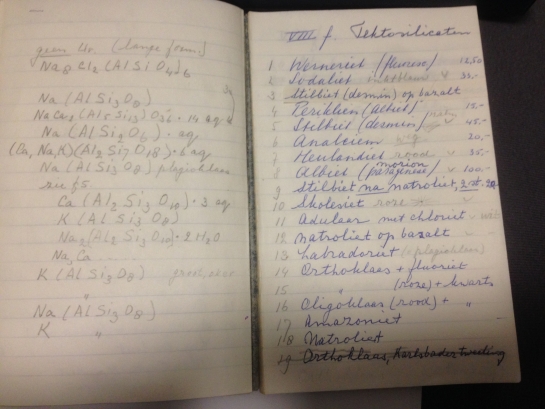 geen Un. (lange form.)
Na8 Cl2 (Al Si O4)6
Na (Al Si3 O8)
14 aq
Na (Al Si2 O6) • aq
(Ca, Na, K) (Al2 Si7 O18) • 6 aq
Na (Al Si3 O8) plagioklaas
zie f5
Ca (Al2 Si3 O10) • 3 aq
K (Al Si3 O8)
Na2 (Al2 Si3 O10) • 2 H2O
Na, Ca
K (Al Si3 O8)
"
Na (Al Si3 O8)
K "
VIII f. Tektosilicaten
1 Werneriet (fluoresc) 12,50
2 Sodaliet 35.-
3 Stilbiet (desmin) op bazalt
4 Periklien (albiet) 15.-
5 Stilbiet (desmin) 45.-
6 Analciem 20.-
7 Heulandiet rood 35.-
8 Albiet (paragenese) morion 100.-
9 Stilbiet na natroliet, 2 st.
10 Skolesiet roze
11 Adulaar met chloriet
12 natroliet op bazalt
13 Labradoriet (plagioklaas)
14 Orthoklaas + fluoriet
15 " (roze) + kwarts
16 Oligoklaas (rood) + "
17 Amazoniet
18 Natroliet
19 Orthoklaas, Karlsbader tweeling